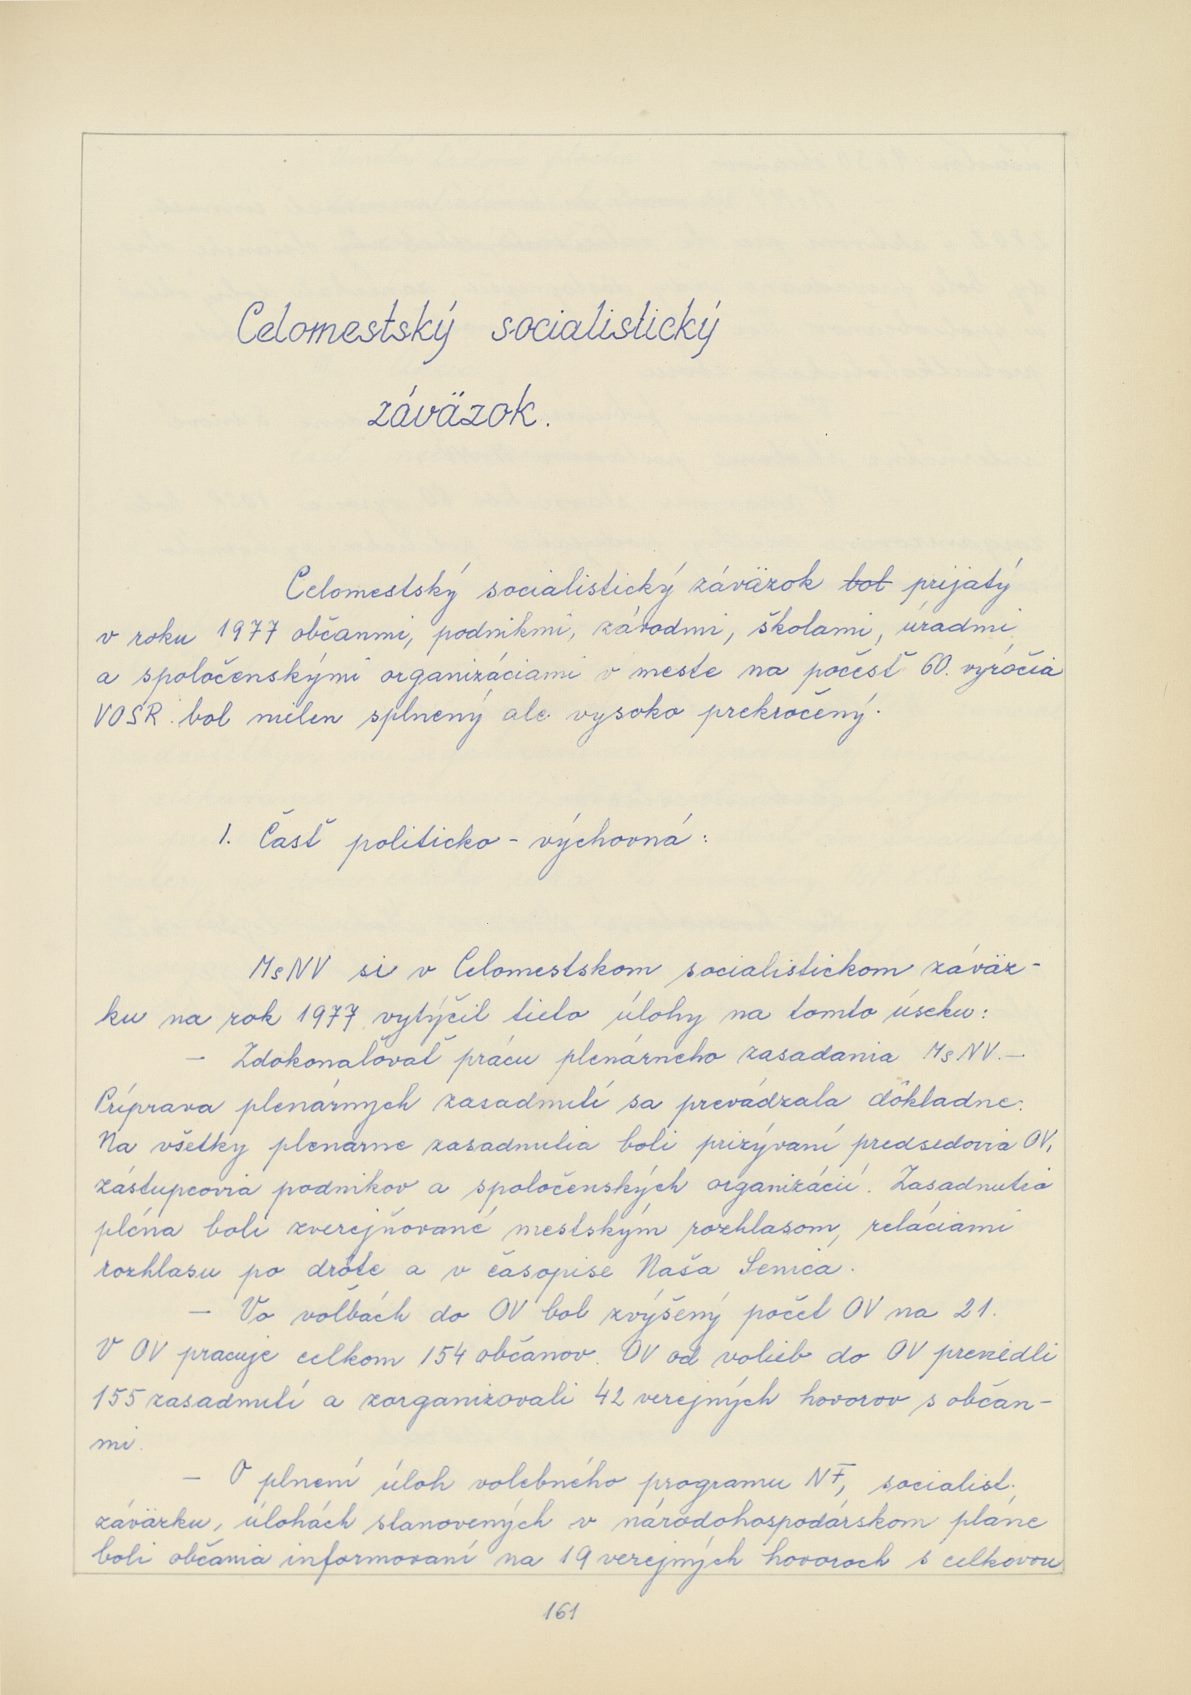 Celomestský socialistický
záväzok.
Celomestský socialistický záväzok bol prijatý
v roku 1977 občanmi, podnikmi, závodmi, školami, úradmi
a spoločenskými organizáciami v meste na počesť 60. výročia
VOSR. bol nielen splnený ale vysoko prekročený.
1. Časť politicko - výchovná:
MsNV si v Celomestskom socialistickom záväz-
ku na rok 1977 vytýčil tieto úlohy na tomto úseku:
- Zdokonaľovať prácu plenárneho zasadania MsNV. -
Príprava plenárnych zasadnutí sa prevádzala dôkladne.
Na všetky plenárne zasadnutia boli prizývaní predsedovia OV,
zástupcovia podnikov a spoločenských organizácií. Zasadnutia
pléna boli zverejňované mestským rozhlasom, reláciami
rozhlasu po drôte a v časopise Naša Senica.
- Vo voľbách do OV bol zvýšený počet OV na 21.
V OV pracuje celkom 154 občanov. OV od volieb do OV previedli
155 zasadnutí a zorganizovali 42 verejných hovorov s občan-
mi.
- O plnení úloh volebného programu NF, socialist.
záväzku, úlohách stanovených v národohospodárskom pláne
boli občania informovaní na 19 verejných hovoroch s celkovou
161